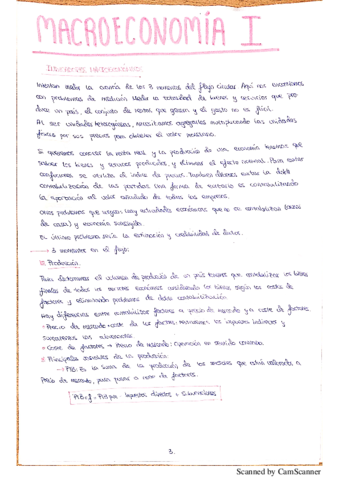 MACROECONOMÍA I
Intentan medir la economía de los 3 momentos del flujo circular. Aquí nos encontramos
con problemas de medición. Medir la totalidad de bienes y servicios que pro-
duce un país, el conjunto de rentas que generan y el gasto no es fácil.
Al ser unidades heterogéneas, necesitamos agregarlas multiplicando las unidades
físicas por sus precios para obtener el valor monetario.
Si queremos conocer la renta real y la producción de una economía tenemos que
valorar los bienes y servicios producidos, y eliminar el efecto
se utiliza el índice de precios. También debemos evitar la doble
contabilización de las partidas. Una forma de evitarlo es contabilizando
la aportación al valor añadido de todas las empresas.
Otros problemas que surgen: hay actividades económicas que no se contabilizan
de casa) y economía sumergida.
El último problema sería la estimación y credibilidad de datos.
→ 3 momentos en el flujo:
Producción.
Para determinar el volumen de producción de un país tenemos que contabilizar los bienes
finales de todos los sectores económicos valorando los bienes según los costes de
factores y eliminando problemas de doble contabilización.
Hay diferencias entre contabilizar factores a precio de mercado y a coste de factores.
· Precio de mercado = coste de los factores los impuestos indirectos y
las subvenciones
· Coste de factores → Precio de mercado: operación en sentido contrario.
Principales de la producción
→ PIB: Es la suma de la producción, de los sectores que está valorada a
precio de mercado, para pasar a coste de factores.
PIBcf = PIBpm - Impuestos directos + Subvenciones
3.
Scanned by CamScanner